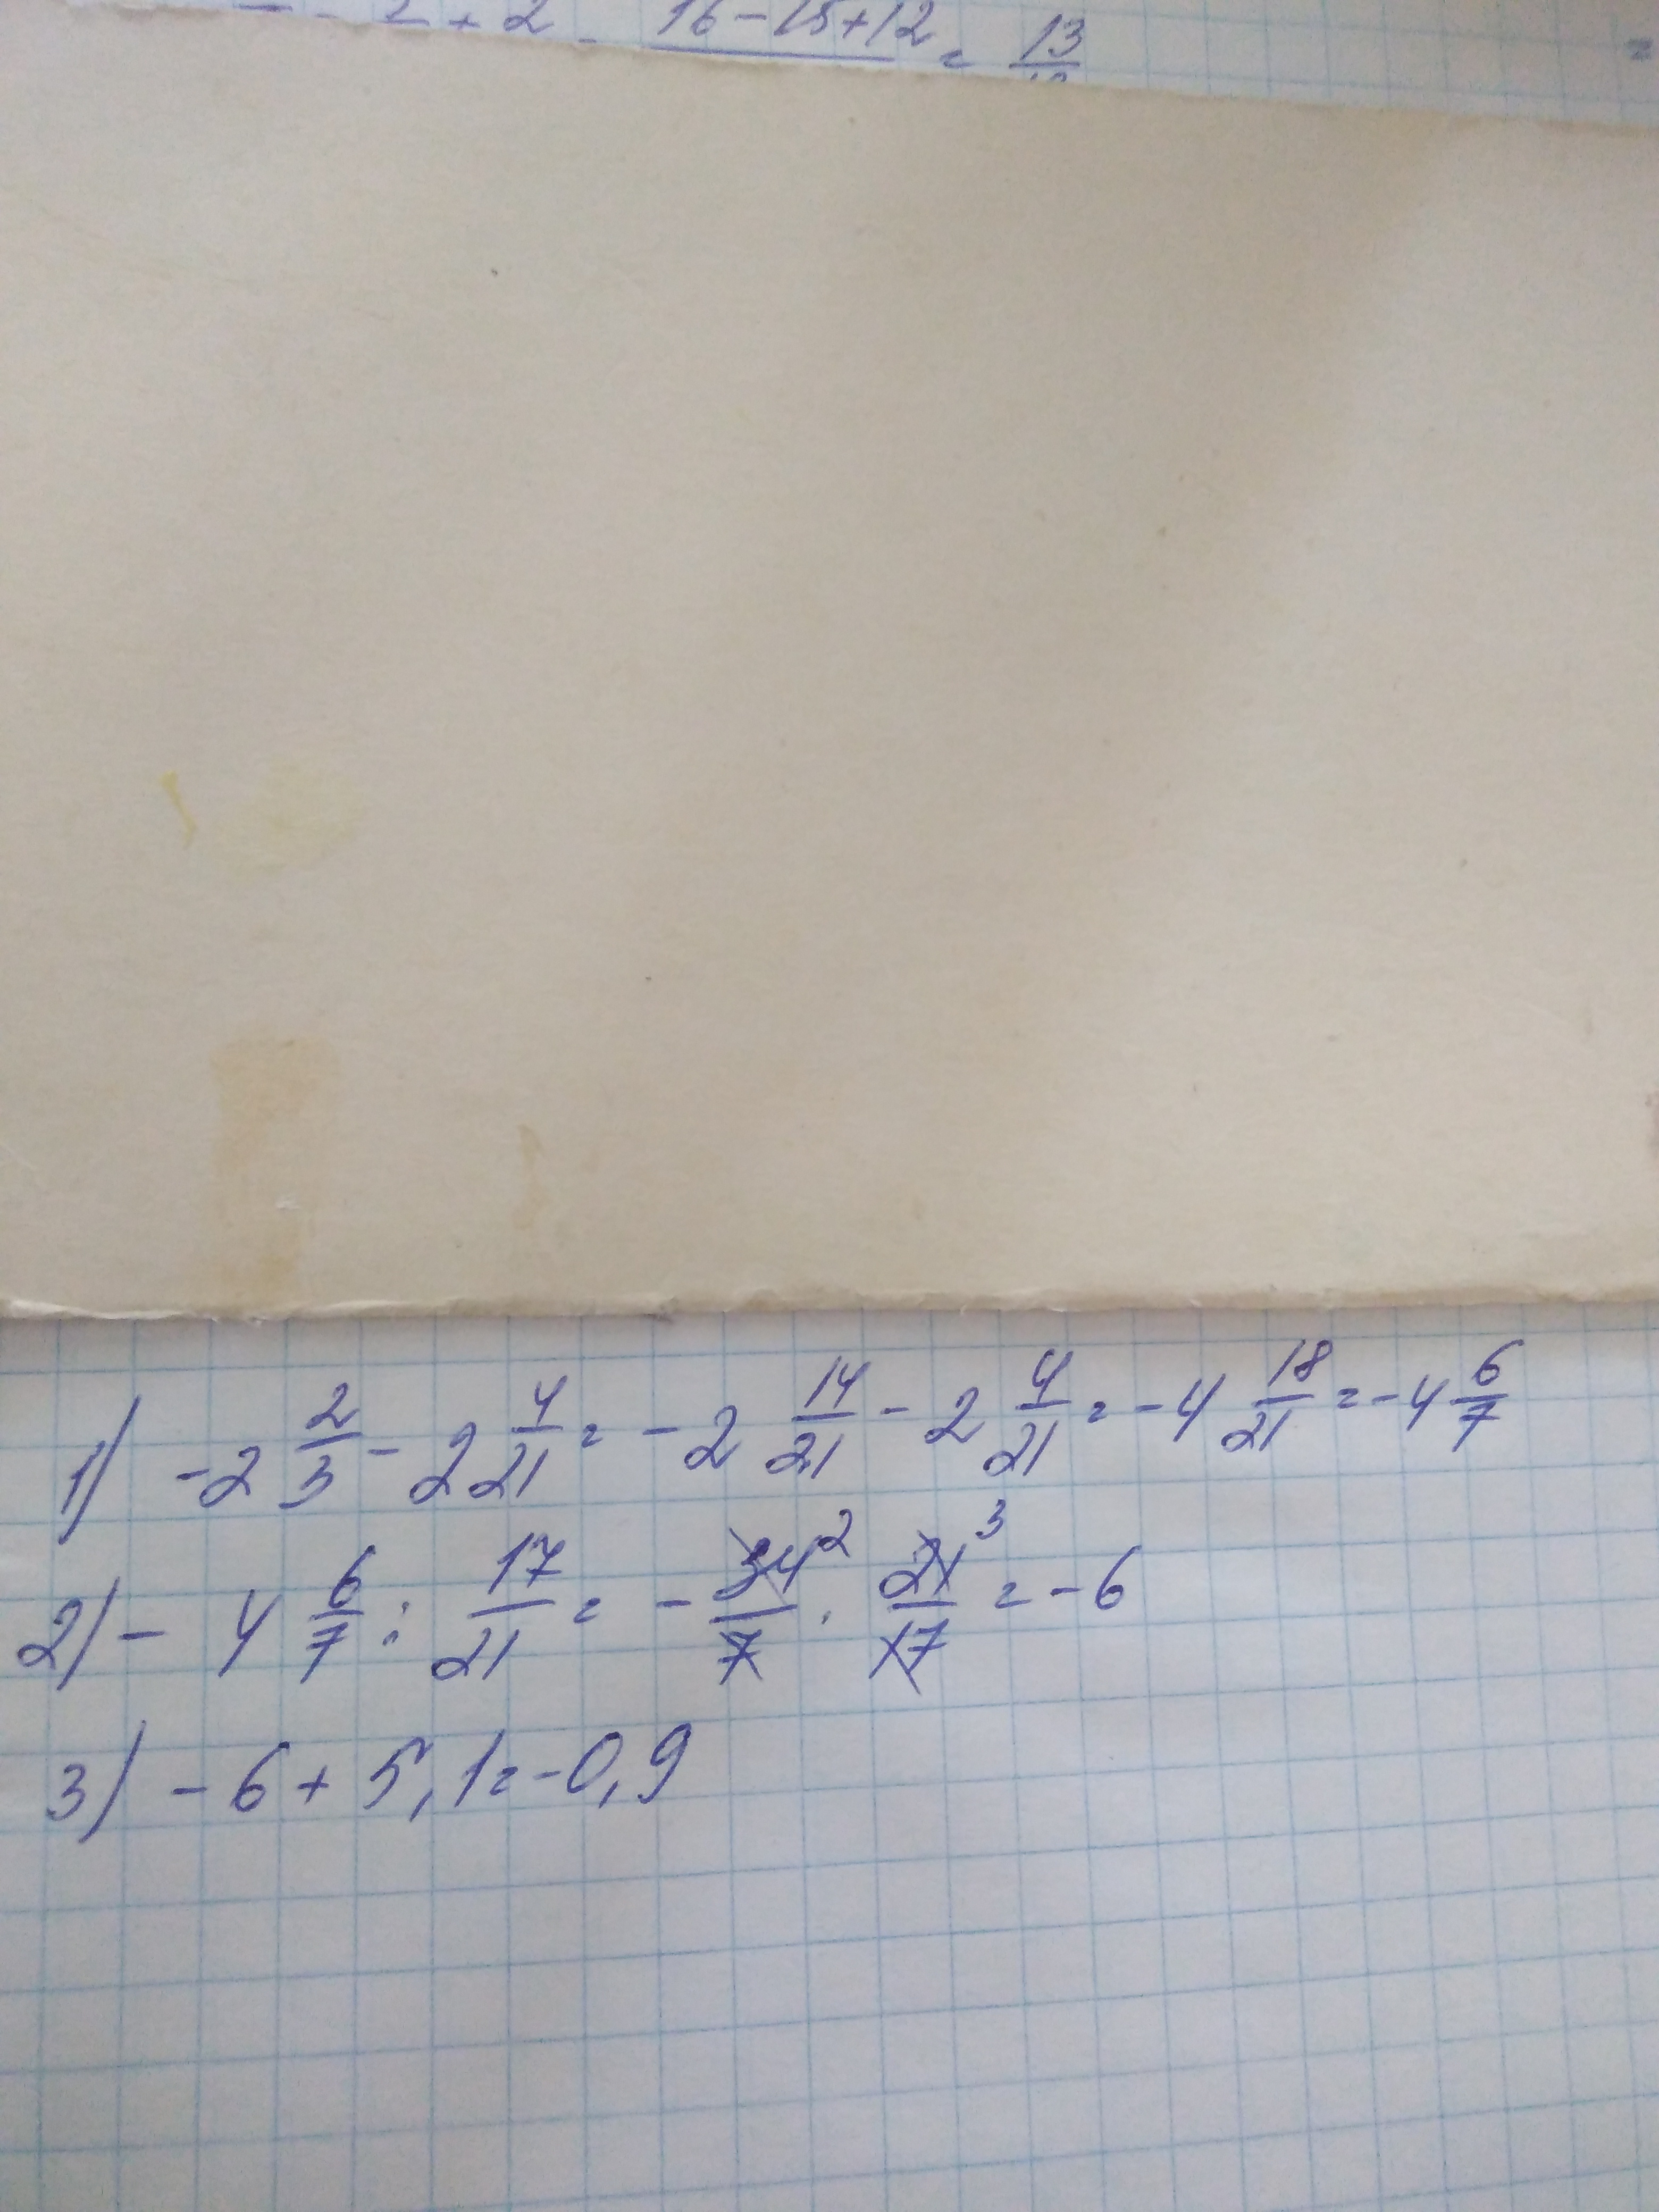 + 2 - 16-15+12 = 13 =
1) -2 2/3 - 2 4/21 = -2 14/21 - 2 4/21 = -4 18/21 = -4 6/7
2) - 4 6/7 : 17/21 = - 34/7 2 · 21/17 3 = -6
3) -6 + 5,1 = -0,9